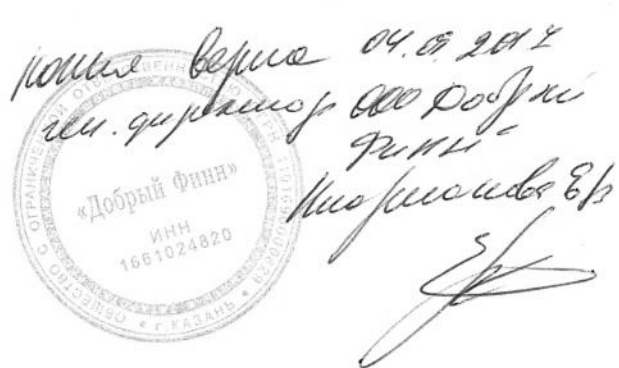 копия верна 04.09.2017
ген. директор ООО Добрый
Финн
ОБЩЕСТВО С ОГРАНИЧЕННОЙ ОТВЕТСТВЕННОСТЬЮ
ОГРН
«Добрый Финн»
ИНН
1661024820
* г. КАЗАНЬ *